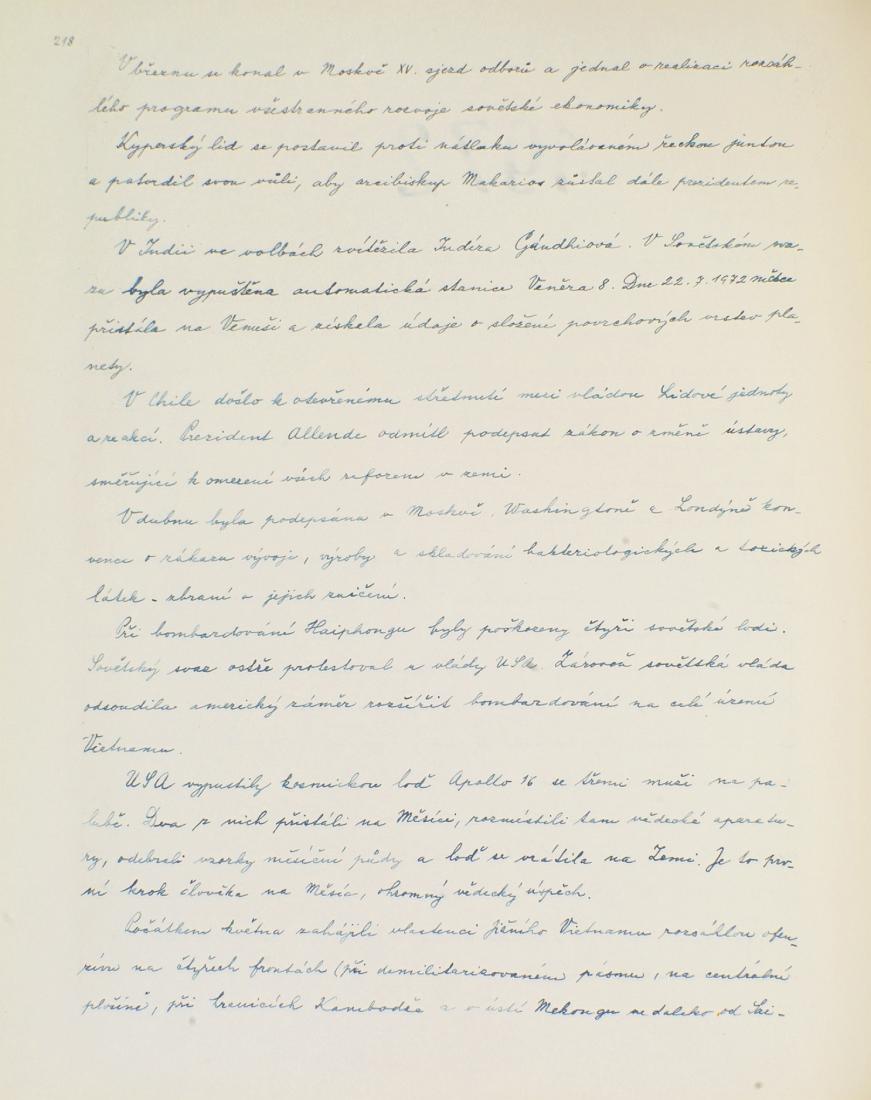 218
V březnu se konal v Moskvě XV. sjezd odborů a jednal o realizaci rozsáh-
lého programu všestranného rozvoje sovětské ekonomiky.
Kyperský lid se postavil proti nátlaku vyvolávaném řeckou juntou
a potvrdil svou vůli, aby arcibiskup Makarios zůstal dále prezidentem re-
publiky.
V Indii ve volbách zvítězila Indíra Gándhiová. V Sovětském sva-
zu byla vypuštěna automatická stanice Veněra 8. Dne 22.7.1972 měkce
přistála na Venuši a získala údaje o složení povrchových vrstev pla-
nety.
V Chile došlo k otevřenému střetnutí mezi vládou Lidové jednoty
a reakcí. Prezident Allende odmítl podepsat zákon o změně ústavy,
směřující k omezení všech reforem v zemi.
V dubnu byla podepsána v Moskvě, Washingtoně a Londýně kon-
vence o zákazu vývoje, výroby a skladování bakteriologických a toxických
látek - zbraní a jejich zničení.
Při bombardování Haiphongu byly poškozeny čtyři sovětské lodi.
Sovětský svaz ostře protestoval u vlády USA. Zároveň sovětská vláda
odsoudila americký záměr rozšířit bombardování na celé území
Vietnamu.
USA vypustily kosmickou loď Apollo 16 se třemi muži na pa-
lubě. Dva z nich přistáli na Měsíci, rozmístili tam vědecké aparatu-
ry, odebrali vzorky měsíční půdy a loď se vrátila na Zemi. Je to prv-
ní krok člověka na Měsíc, ohromný vědecký úspěch.
Počátkem května zahájili vlastenci jižního Vietnamu rozsáhlou ofen-
zívu na čtyřech frontách (při demilitarizovaném pásmu, na centrální
plošině, při hranicích Kambodže a v ústí Mekongu nedaleko od Sai-